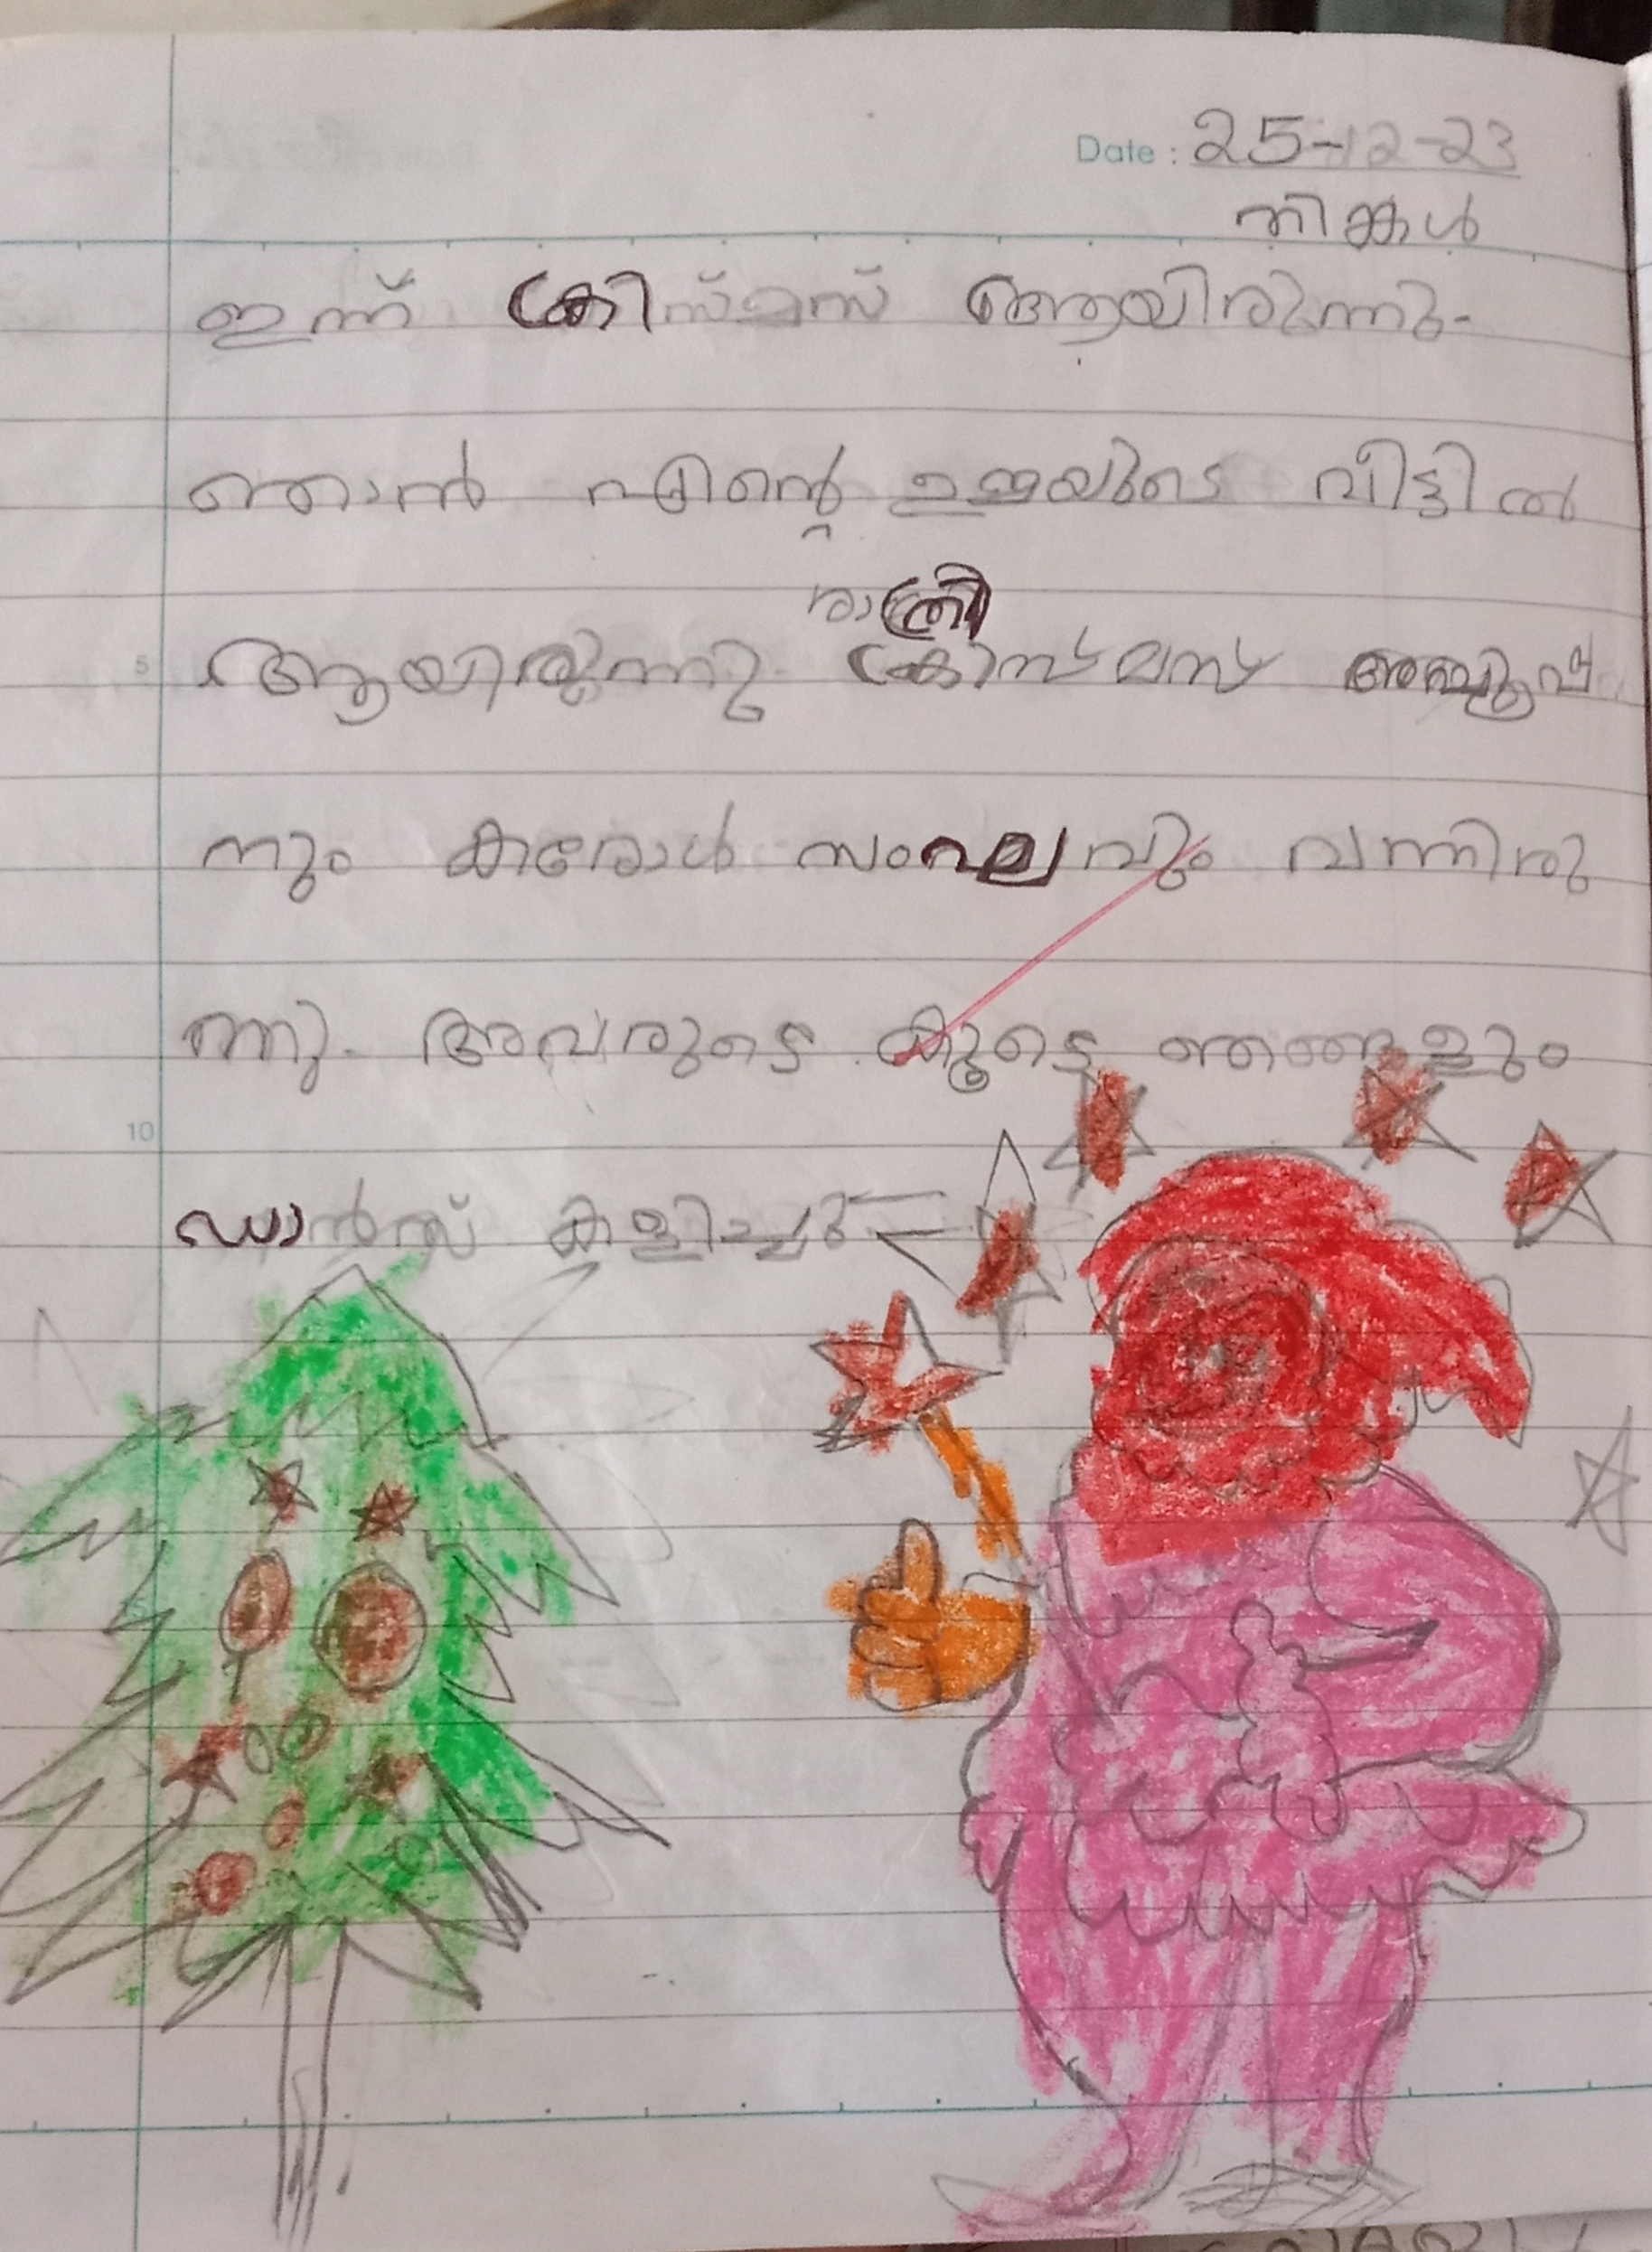 Date : 25-12-23
തിങ്കൾ
ഇന്ന് ക്രിസ്മസ് ആയിരുന്നു.
ഞാൻ എന്റെ ഉമ്മയുടെ വീട്ടിൽ
രാത്രി
ആയിരുന്നു ക്രിസ്മസ് അപ്പൂപ്പ
നും കരോൾ സംഘവും വന്നിരു
ന്നു. അവരുടെ കൂടെ ഞങ്ങളും
5
10
ഡാൻസ് കളിച്ചു